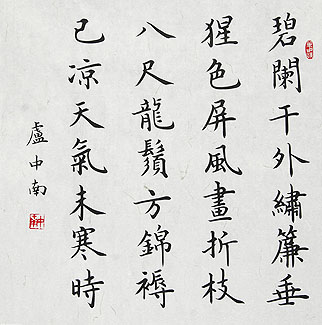 碧闌干外繡簾垂
猩色屏風畫折枝
八尺龍鬚方錦褥
已涼天氣未寒時
盧中南